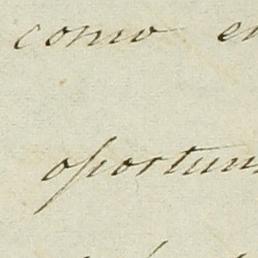 como en
oportun